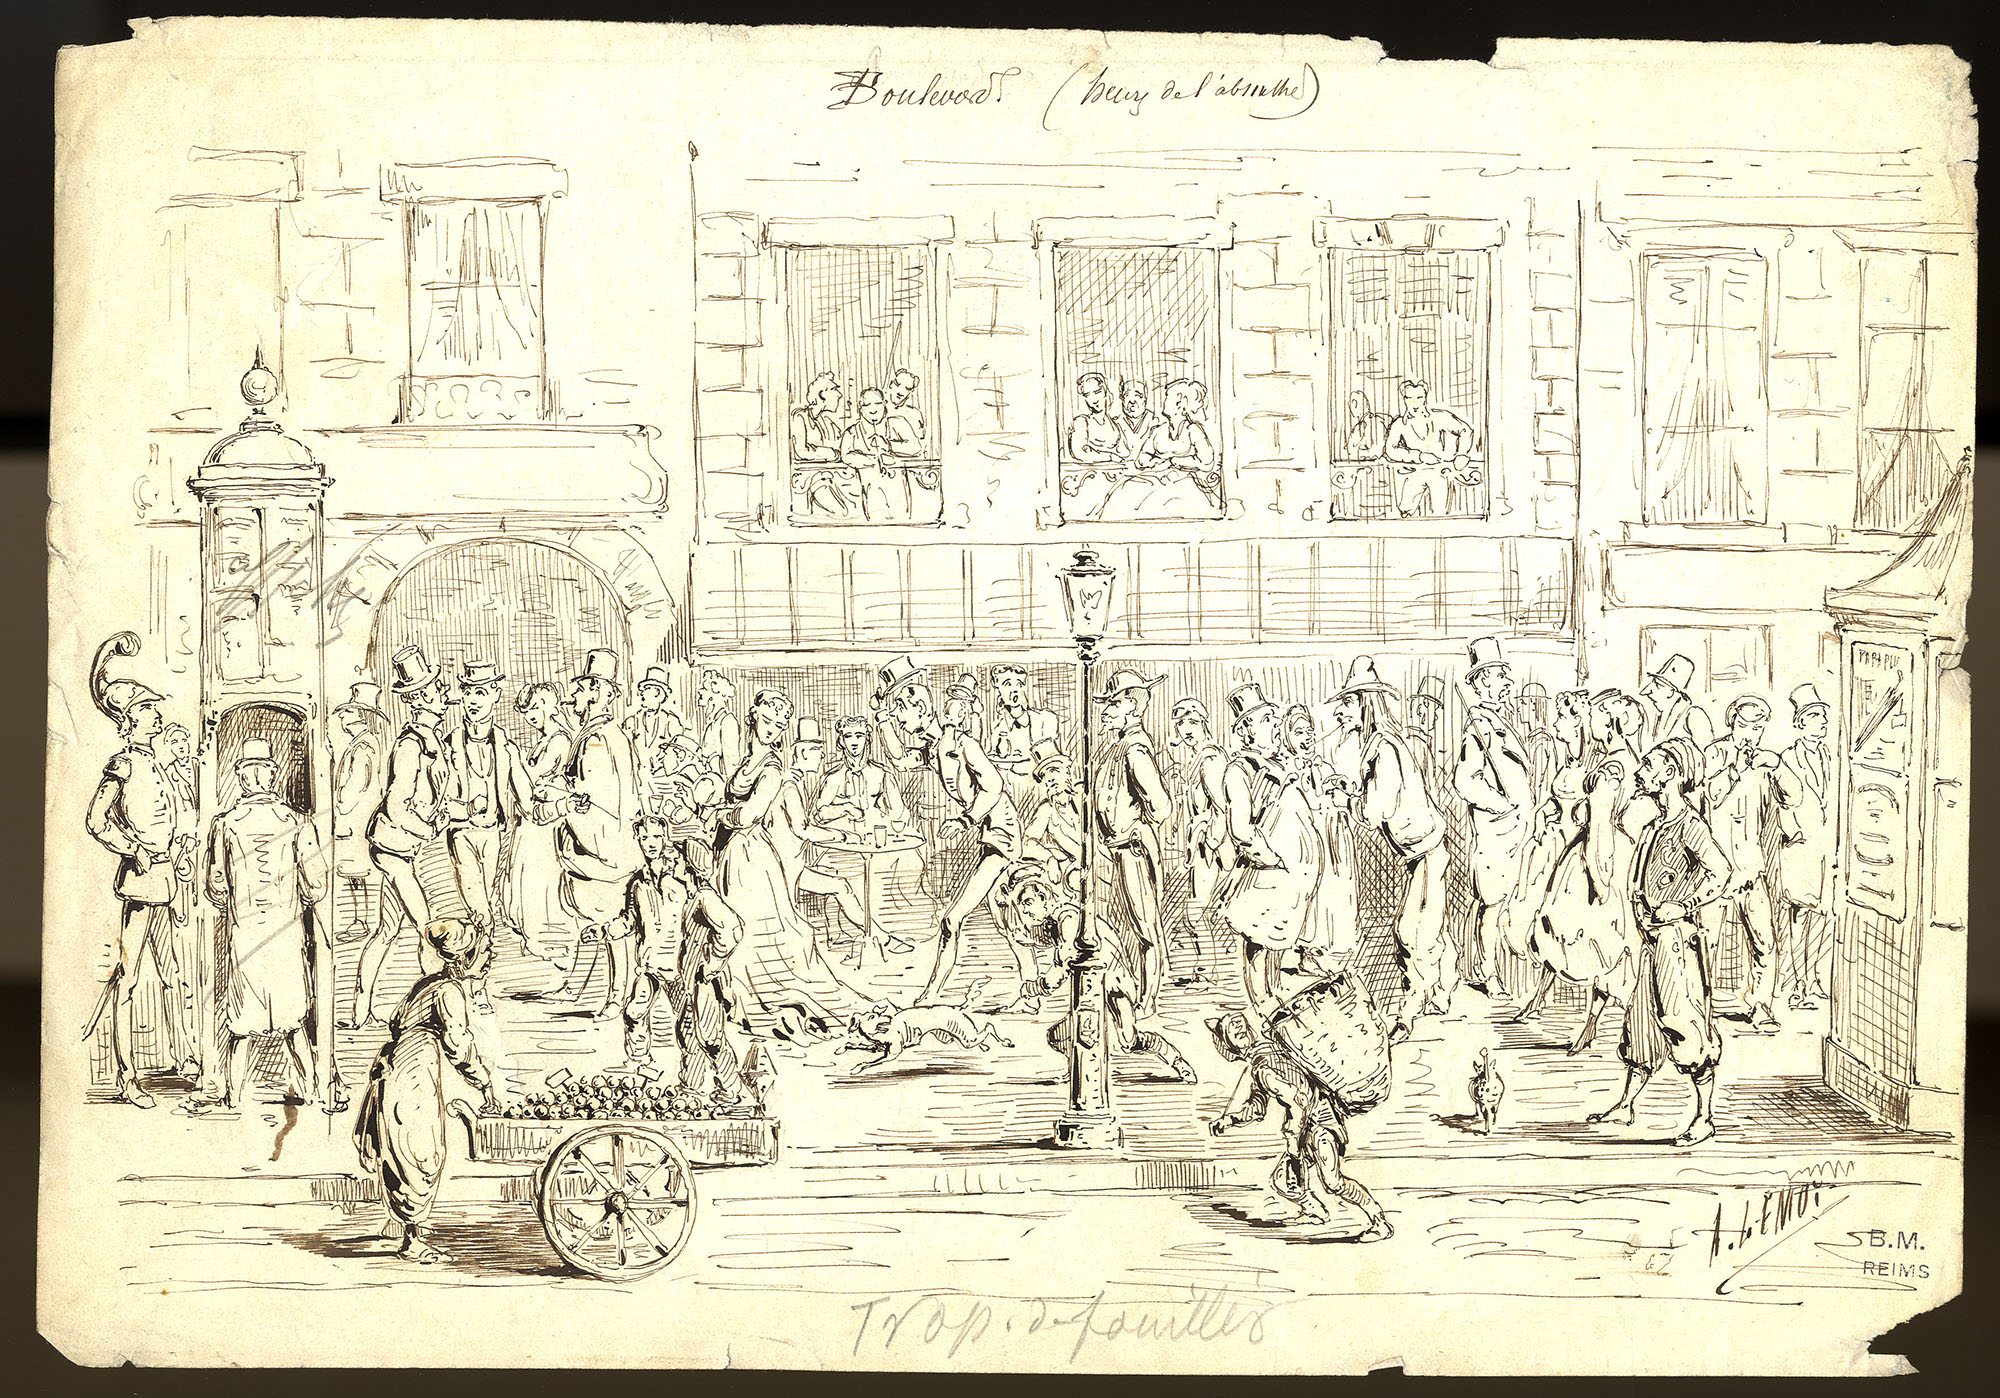 Boulevard (heure de l'absinthe)
PARAPLU
A. LEMOT
67
B.M.
REIMS
Trop. de fouillés